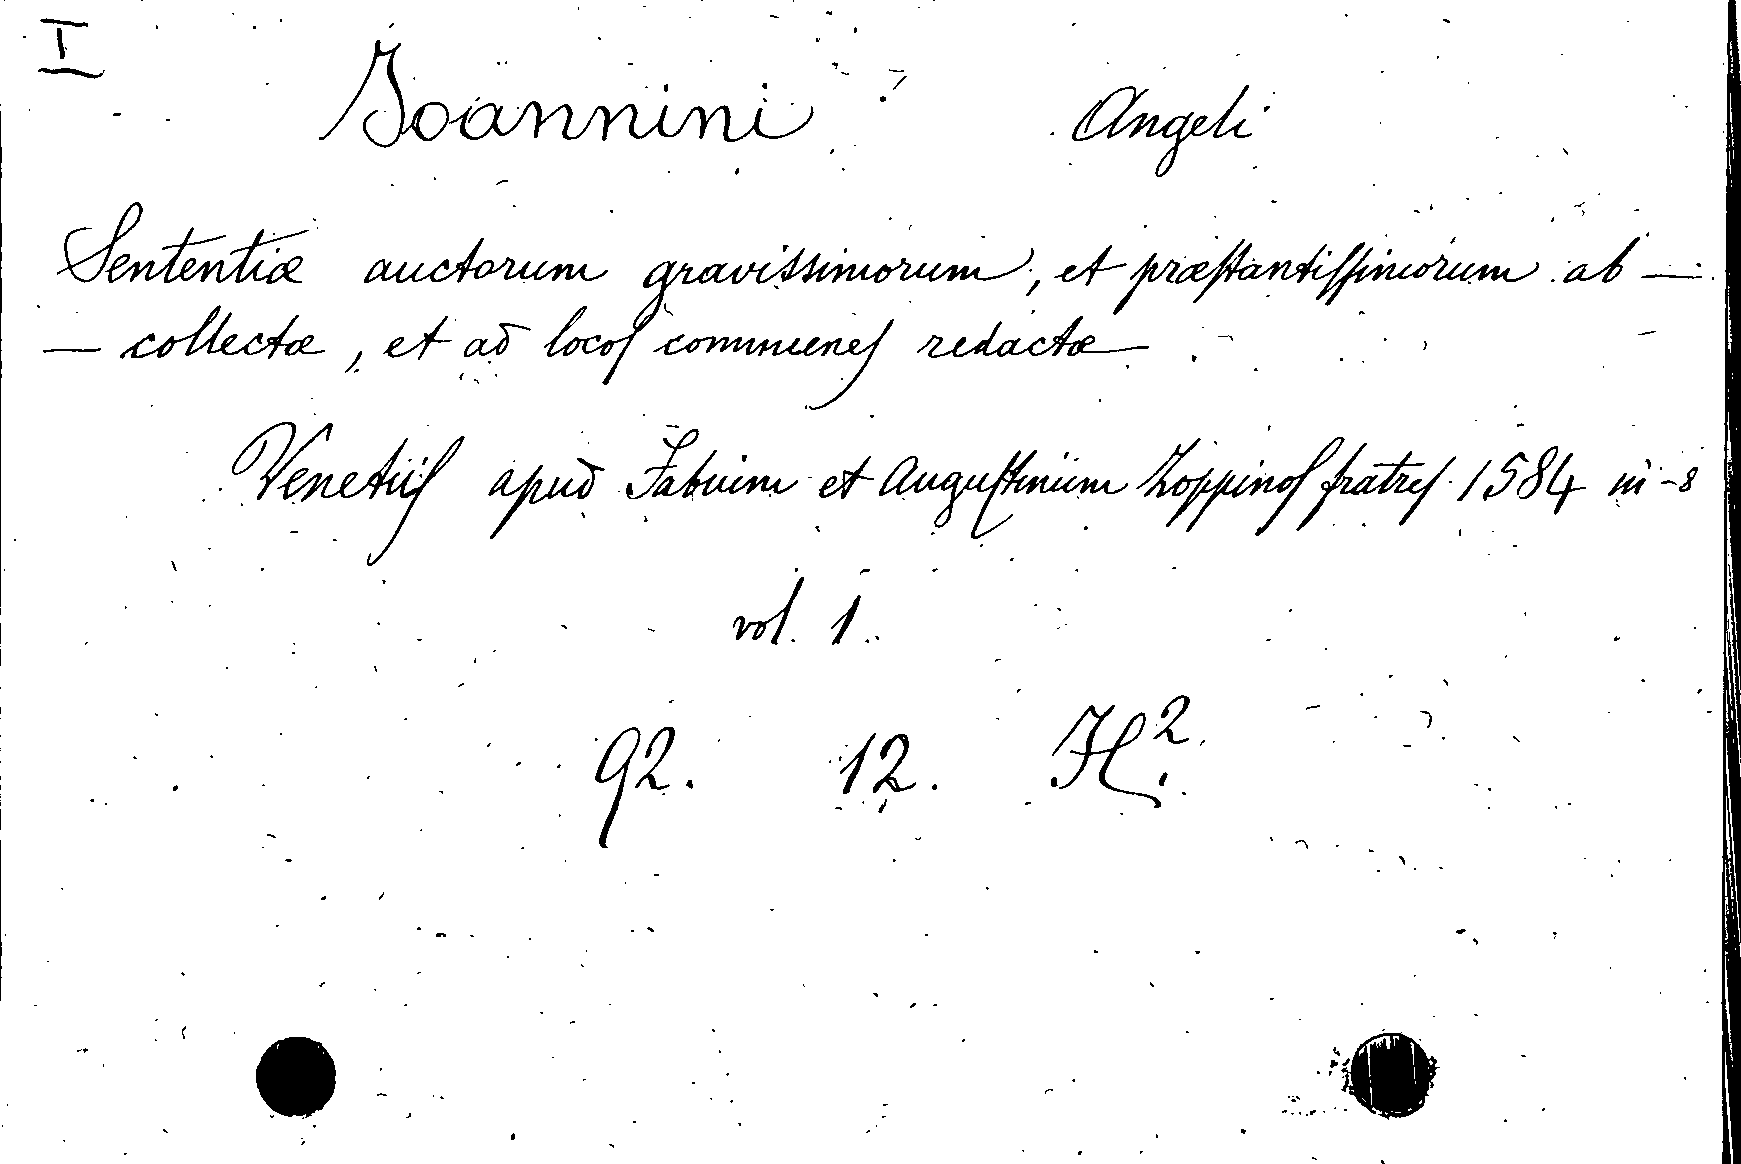 I
Joannini Angeli
Sententiæ auctorum gravissimorum, et præstantissimorum ab —
— collectæ, et ad locos communes redactæ
Venetiis apud Fabium et Augustinum Zoppinos fratres 1584 in-8
vol. 1.
92. 12. H².